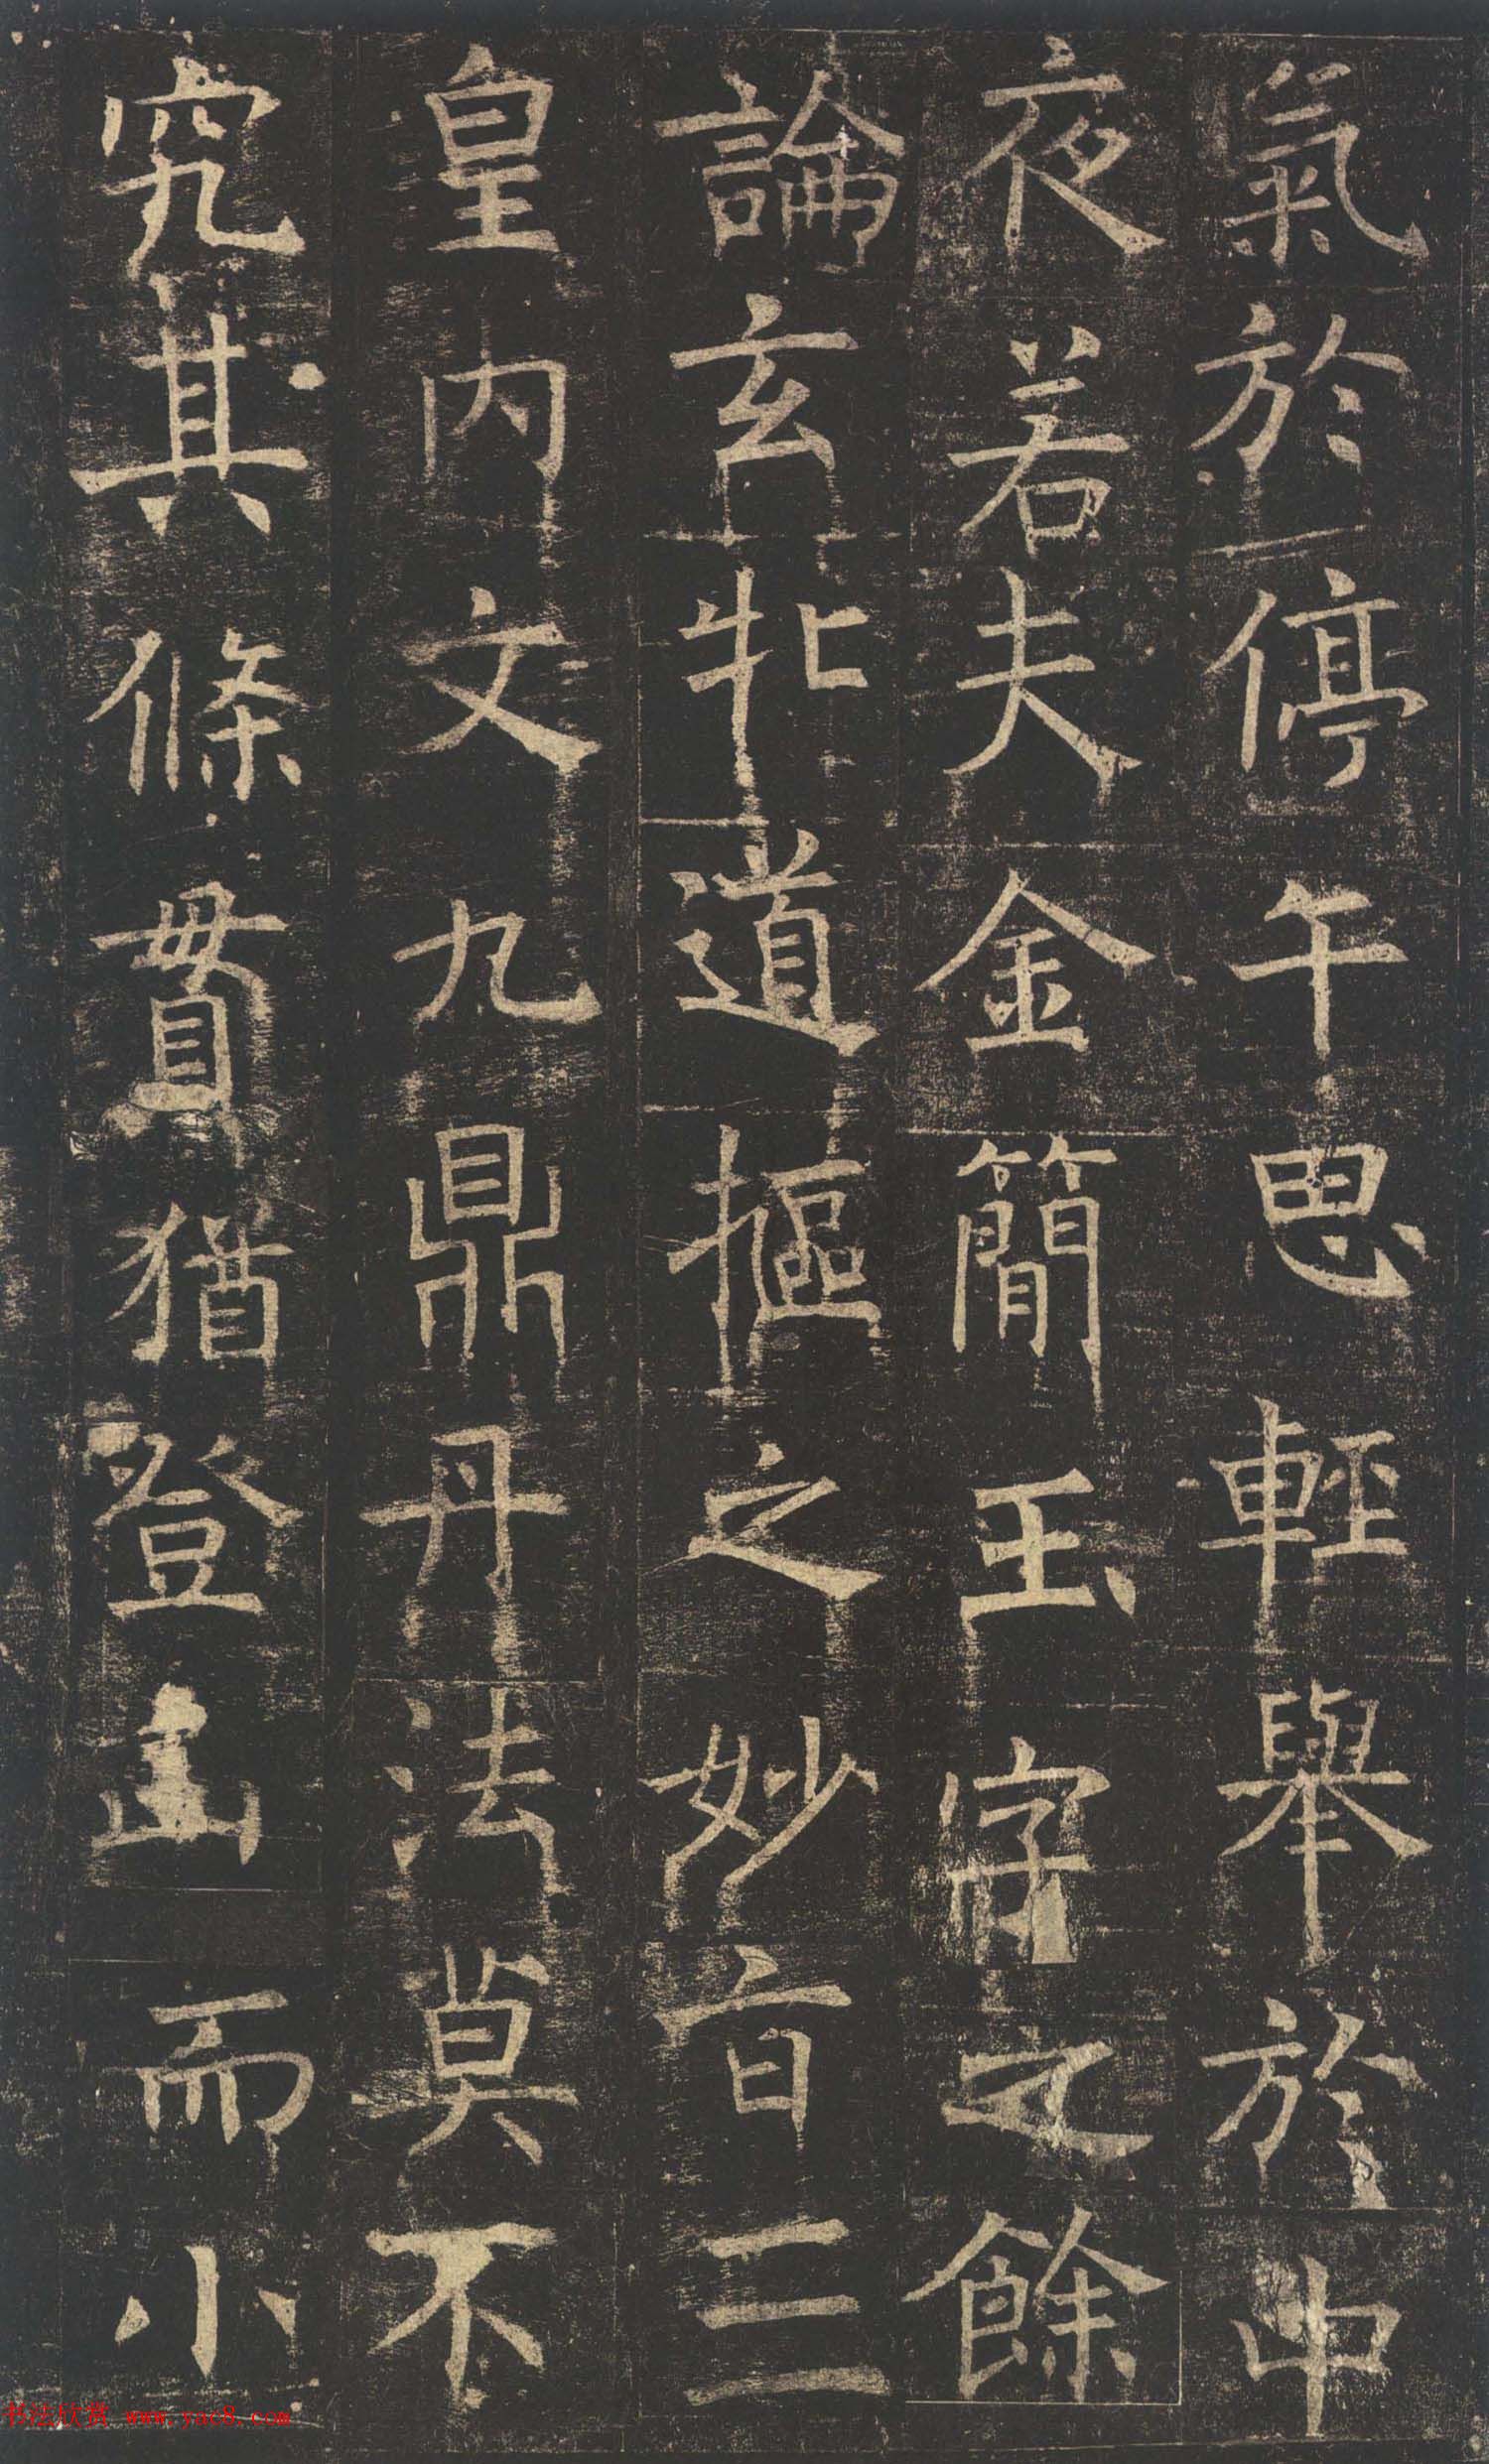 氣於停午思輕舉於中
夜若夫金簡玉字之餘
論玄牝道摳之妙旨三
皇内文九鼎丹法莫不
究其條貫猶登山而小
书法欣赏 www.yac8.com